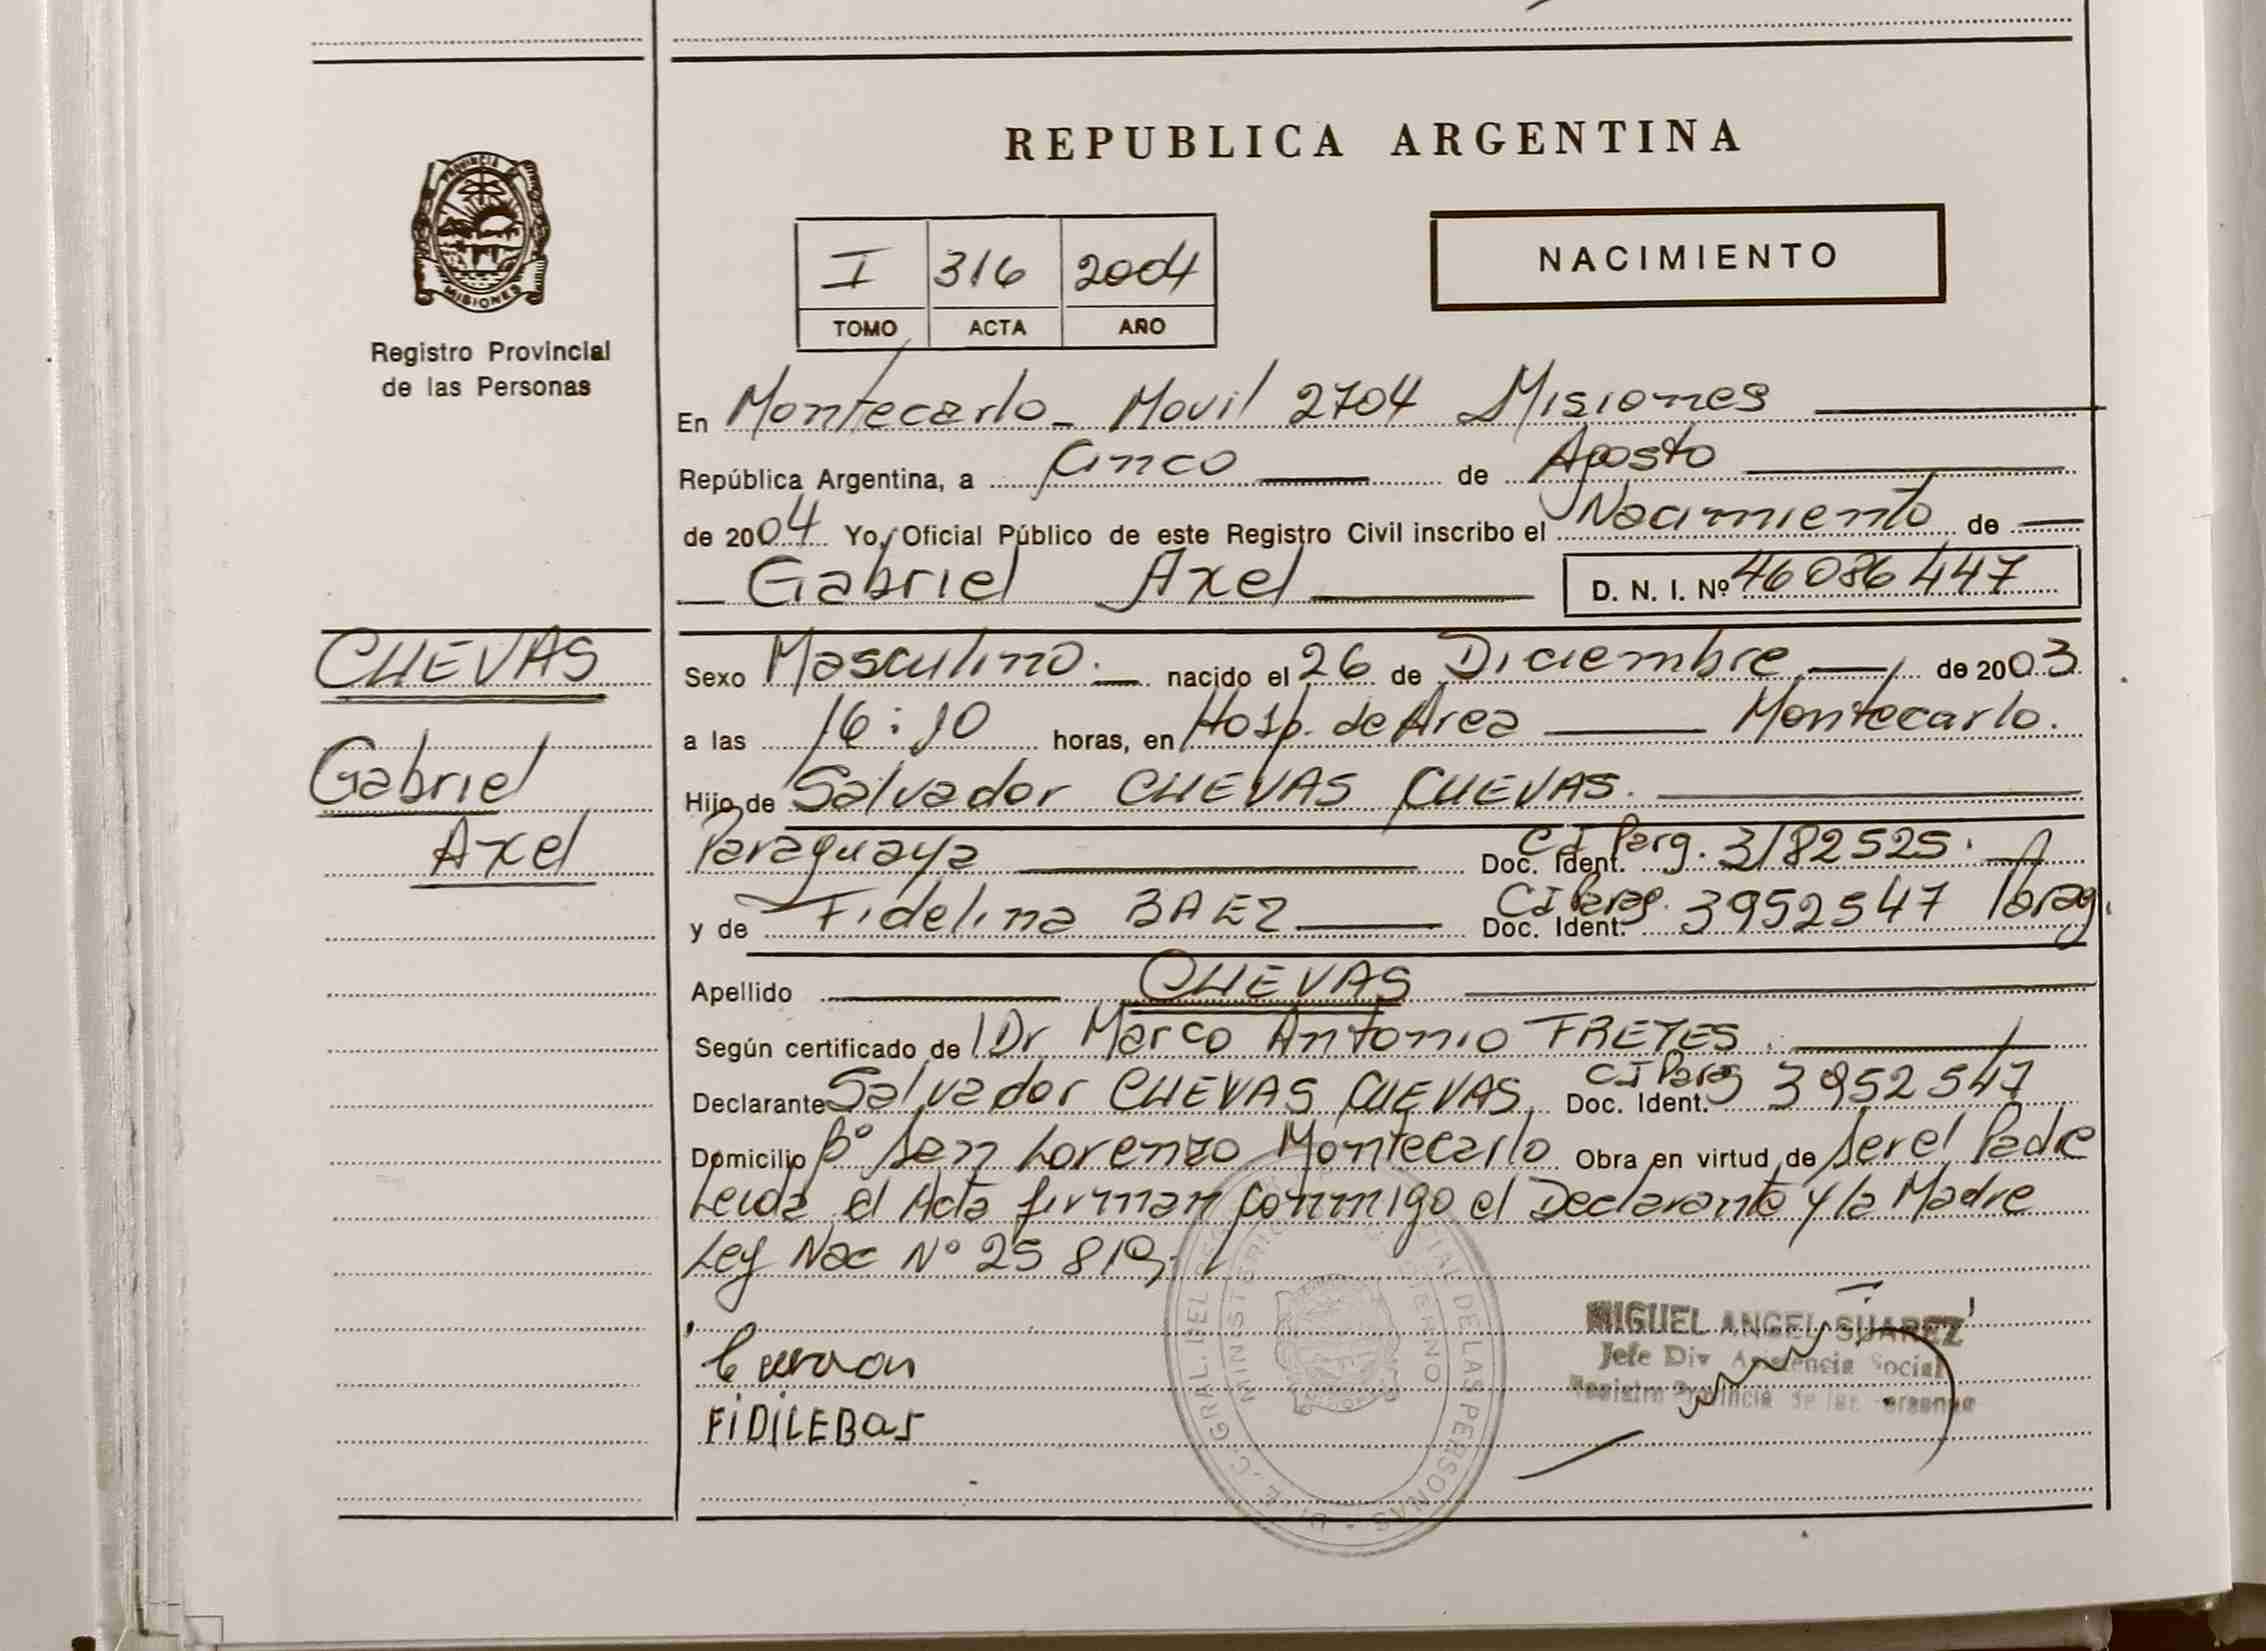 REPUBLICA ARGENTINA
PROVINCIA DE
MISIONES
Registro Provincial
de las Personas
NACIMIENTO
I 316 2004
TOMO ACTA AÑO
En Montecarlo - Movil 2704 Misiones
República Argentina, a Cinco de Agosto
de 2004 Yo, Oficial Público de este Registro Civil inscribo el Nacimiento de
Gabriel Axel D. N. I. Nº 46086447
CUEVAS
Gabriel
Axel
Sexo Masculino. nacido el 26 de Diciembre de 2003
a las 16:10 horas, en Hosp. de Area Montecarlo.
Hijo de Salvador CUEVAS CUEVAS.
Paraguaya Doc. Ident. CI Parg. 3182525.
y de Fidelina BAEZ Doc. Ident. CI Parag. 3952547 Parag.
Apellido CUEVAS
Según certificado de Dr Marco Antonio FREYES.
Declarante Salvador CUEVAS CUEVAS, Doc. Ident. CI Parag 3952547
Domicilio Bº San Lorenzo Montecarlo Obra en virtud de ser el Padre
Leida el Acta firman conmigo el Declarante y la Madre
Ley Nac Nº 25 819.
FIDILEBAS
MIGUEL ANGEL SUAREZ
Jefe Div Asistencia Social
Registro Provincial de las Personas